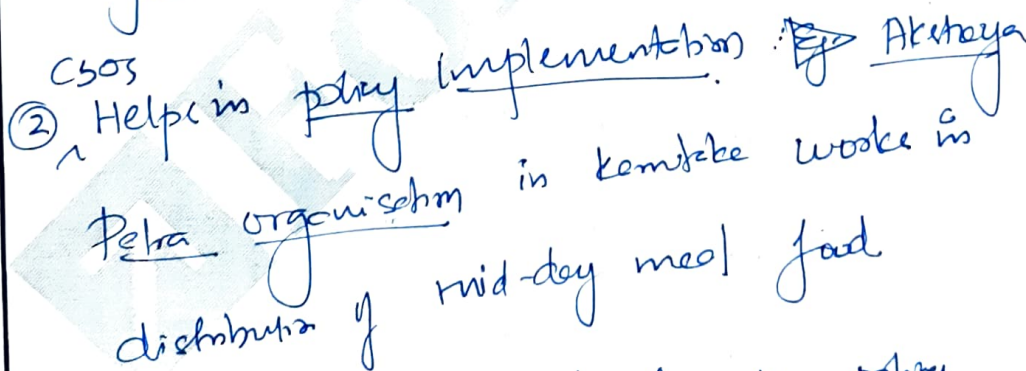 CSOs
② Helps in policy implementation. Eg Akshaya
Patra organisation in Karnataka works in
distribution of mid-day meal food